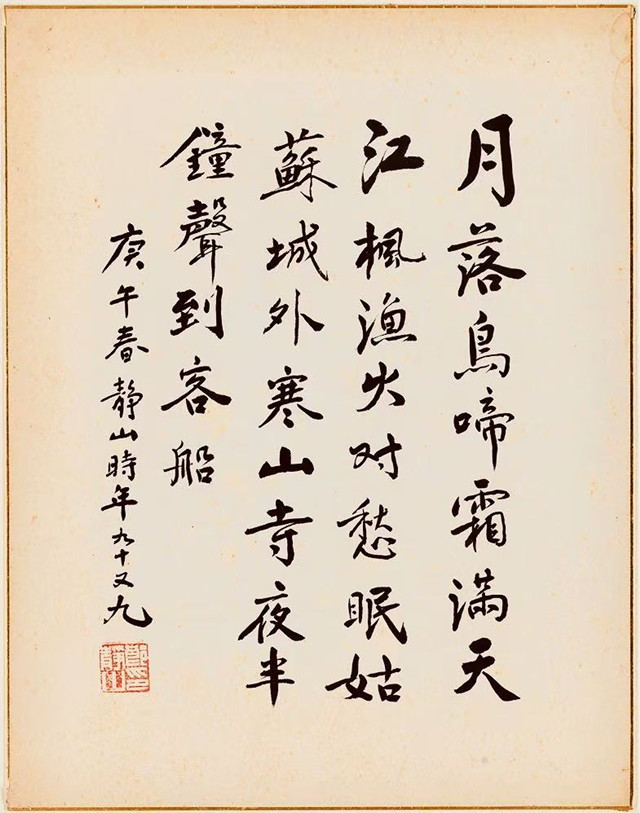 月落鳥啼霜滿天
江楓漁火对愁眠姑
蘇城外寒山寺夜半
鐘聲到客船
庚午春靜山時年九十又九